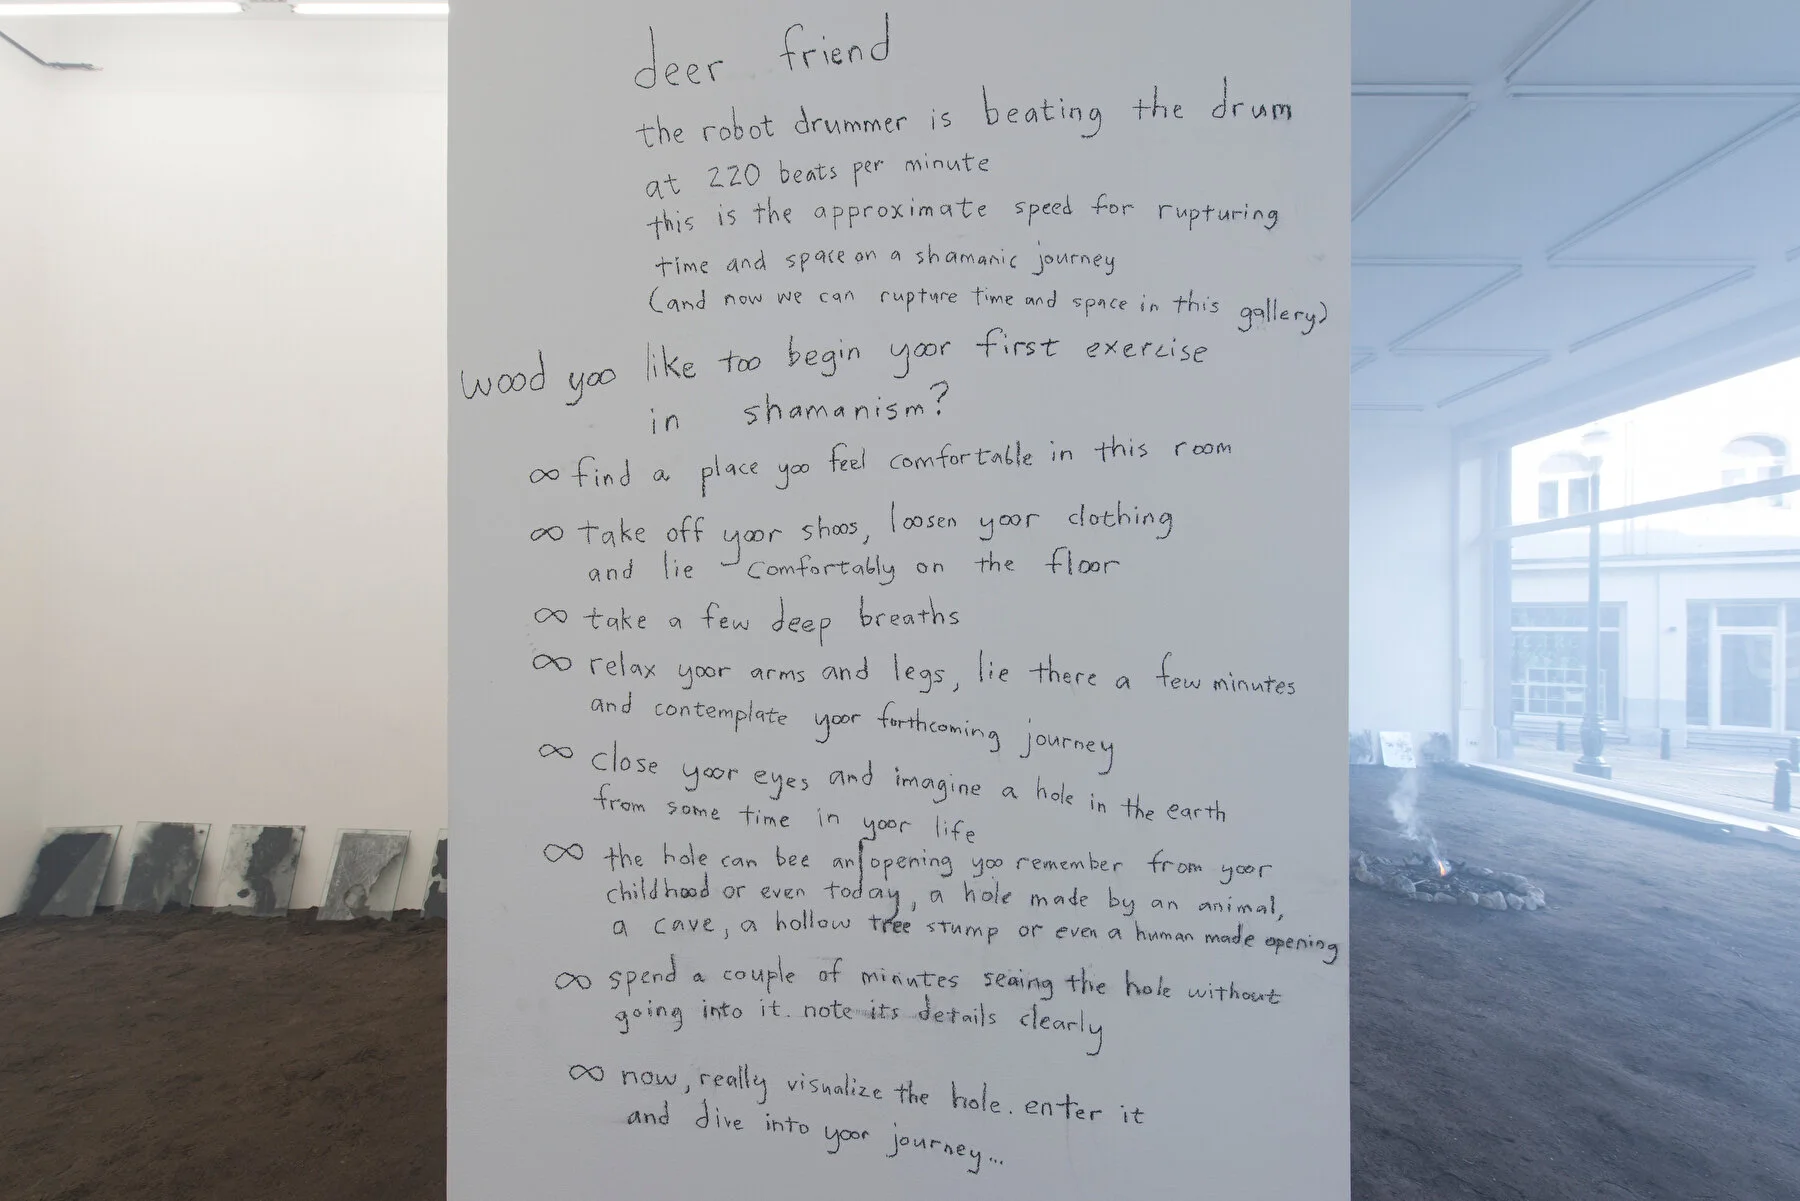 deer friend
the robot drummer is beating the drum
at 220 beats per minute
this is the approximate speed for rupturing
time and space on a shamanic journey
(and now we can rupture time and space in this gallery)
wood yoo like too begin yoor first exercise
in shamanism?
∞ find a place yoo feel comfortable in this room
∞ take off yoor shoos, loosen yoor clothing
and lie comfortably on the floor
∞ take a few deep breaths
∞ relax yoor arms and legs, lie there a few minutes
and contemplate yoor forthcoming journey
∞ close yoor eyes and imagine a hole in the earth
from some time in yoor life
∞ the hole can bee an opening yoo remember from yoor
childhood or even today, a hole made by an animal,
a cave, a hollow tree stump or even a human made opening
∞ spend a couple of minutes seeing the hole without
going into it. note its details clearly
∞ now, really visualize the hole. enter it
and dive into yoor journey...